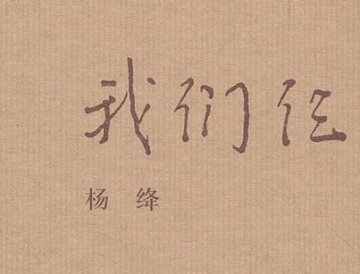 我们仨
杨 绛